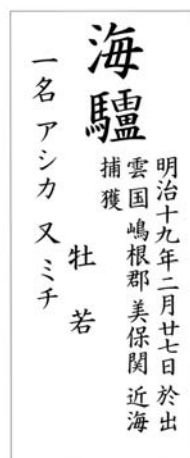 海驢
明治十九年二月廿七日 於出
雲国嶋根郡美保関近海
捕獲
牡 若
一名 アシカ 又 ミチ